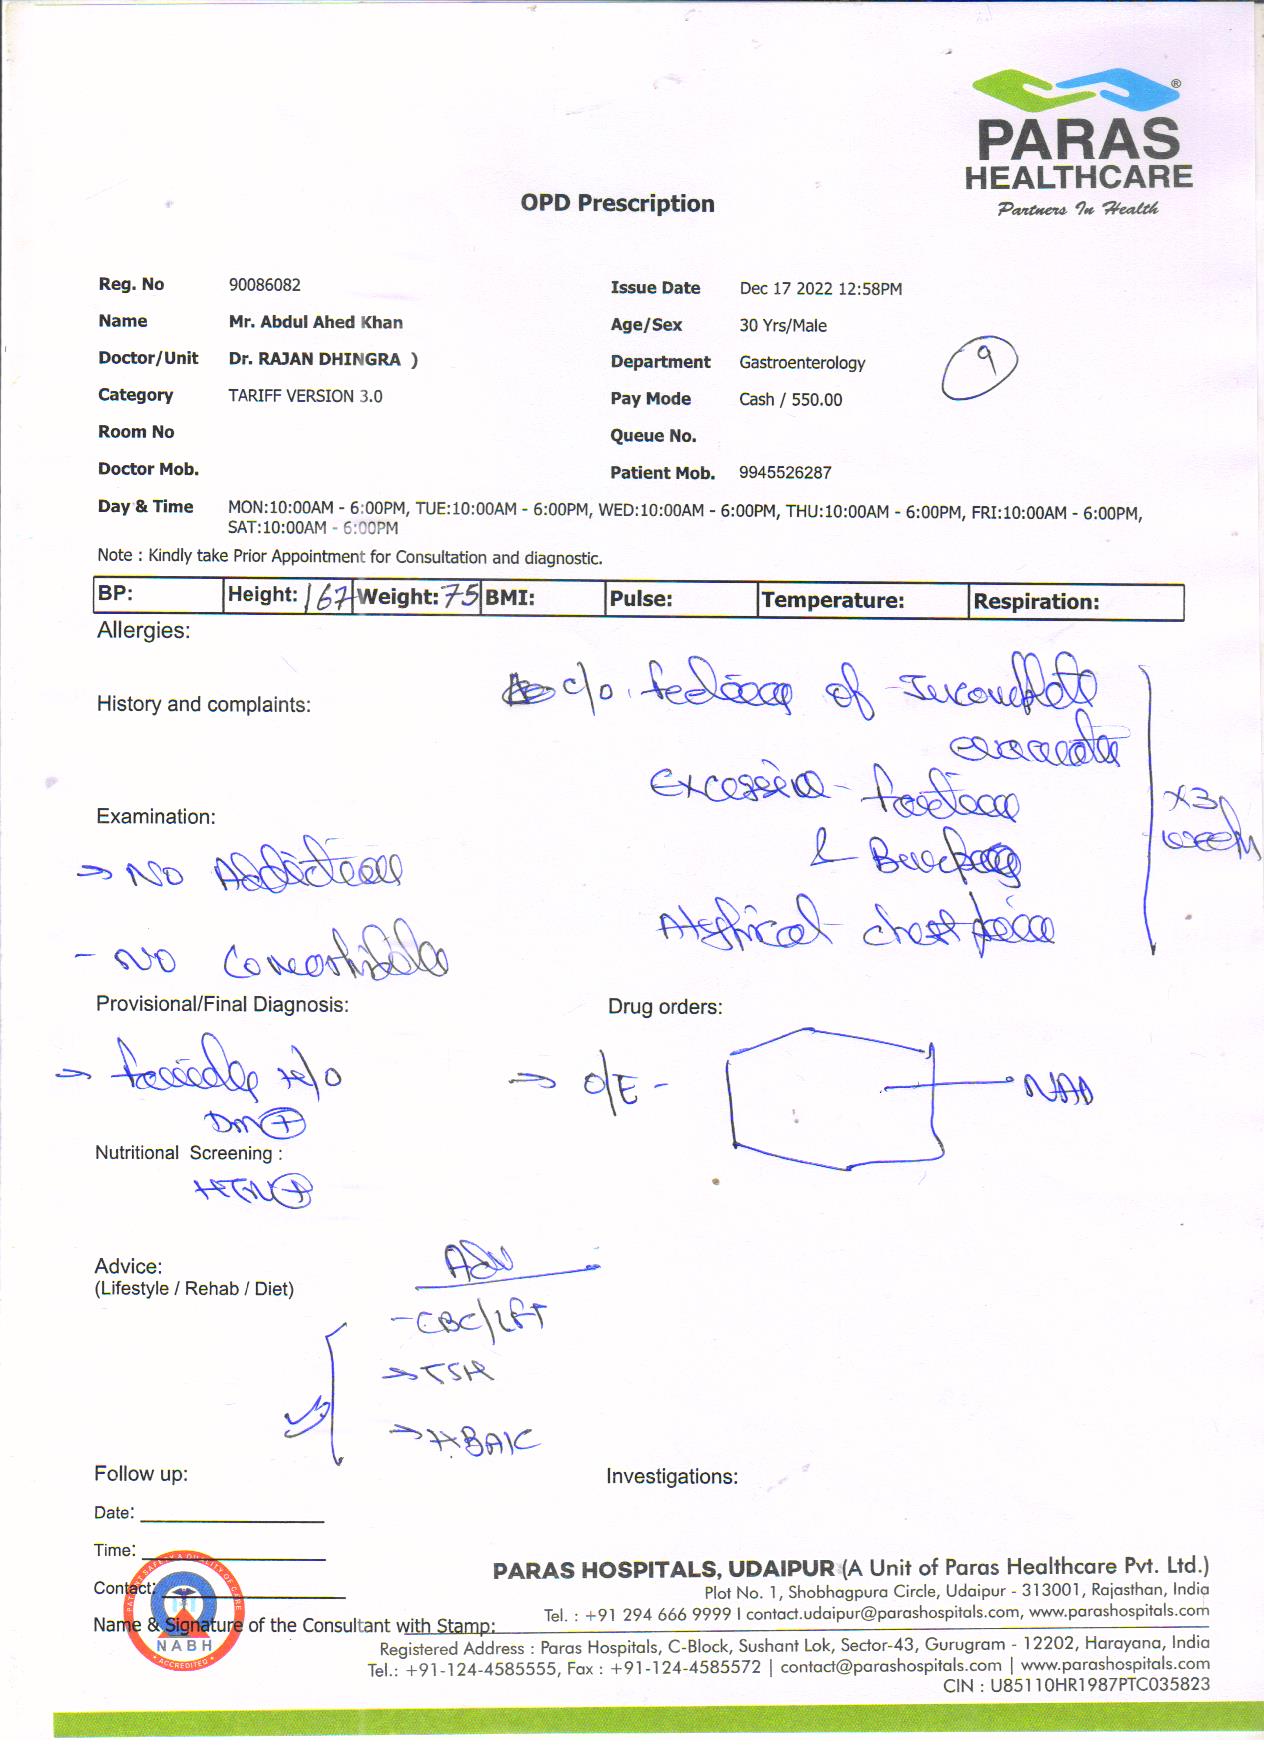 PARAS
HEALTHCARE
Partners In Health
OPD Prescription
Reg. No 90086082 Issue Date Dec 17 2022 12:58PM
Name Mr. Abdul Ahed Khan Age/Sex 30 Yrs/Male
Doctor/Unit Dr. RAJAN DHINGRA ) Department Gastroenterology
9
Category TARIFF VERSION 3.0 Pay Mode Cash / 550.00
Room No Queue No.
Doctor Mob. Patient Mob. 9945526287
Day & Time MON:10:00AM - 6:00PM, TUE:10:00AM - 6:00PM, WED:10:00AM - 6:00PM, THU:10:00AM - 6:00PM, FRI:10:00AM - 6:00PM,
SAT:10:00AM - 6:00PM
Note : Kindly take Prior Appointment for Consultation and diagnostic.
BP: Height: 167 Weight: 75 BMI: Pulse: Temperature: Respiration:
Allergies:
History and complaints: c/o feeling of Incomplete
Excessive
x3
week
Examination:
→ NO Addiction
& Burping
Atypical chest pain
- NO Comorbidities
Provisional/Final Diagnosis: Drug orders:
→ family H/o → O/E - NAD
DM +
Nutritional Screening :
HTN +
Advice: Adv
(Lifestyle / Rehab / Diet)
- CBC/LFT
→ TSH
→ HBA1C
Follow up: Investigations:
Date:
Time:
Contact:
Name & Signature of the Consultant with Stamp:
PATIENT SAFETY & QUALITY OF CARE
NABH
ACCREDITED
PARAS HOSPITALS, UDAIPUR (A Unit of Paras Healthcare Pvt. Ltd.)
Plot No. 1, Shobhagpura Circle, Udaipur - 313001, Rajasthan, India
Tel. : +91 294 666 9999 I contact.udaipur@parashospitals.com, www.parashospitals.com
Registered Address : Paras Hospitals, C-Block, Sushant Lok, Sector-43, Gurugram - 12202, Harayana, India
Tel.: +91-124-4585555, Fax : +91-124-4585572 | contact@parashospitals.com | www.parashospitals.com
CIN : U85110HR1987PTC035823